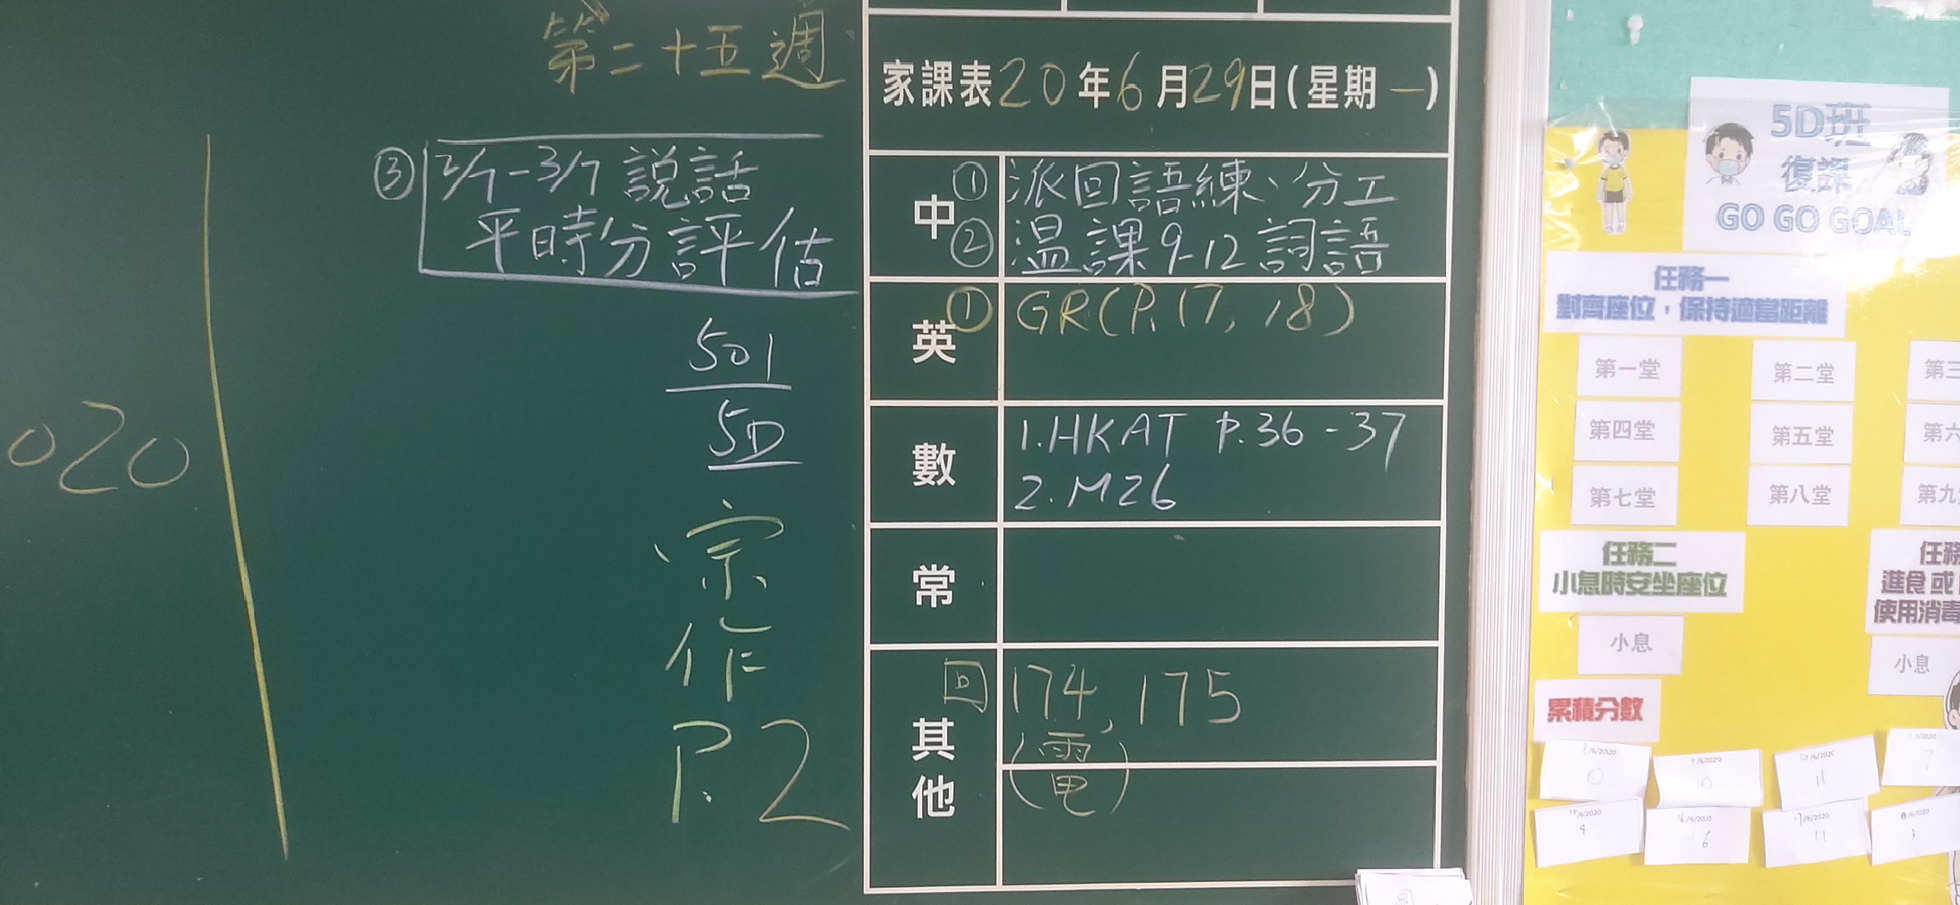 第二十五週
020
③ 2/7-3/7 說話
平時分評估
501
5D
宗
作
P.2
家課表20年6月29日(星期一)
中
① 派回語練、分工
② 温課9-12詞語
英
① GR(P.17, 18)
數
1.HKAT P.36-37
2.M26
常
其他
回 174, 175
(電)
5D班
復課
GO GO GOAL
任務一
對齊座位，保持適當距離
第一堂 第二堂 第三
第四堂 第五堂 第六
第七堂 第八堂 第九
任務二
小息時安坐座位
小息
任務
進食或
使用消毒
小息
累積分數
9/6/2020
10
10/6/2020
11
7
15/6/2020
4
16/6/2020
6
17/6/2020
11
3